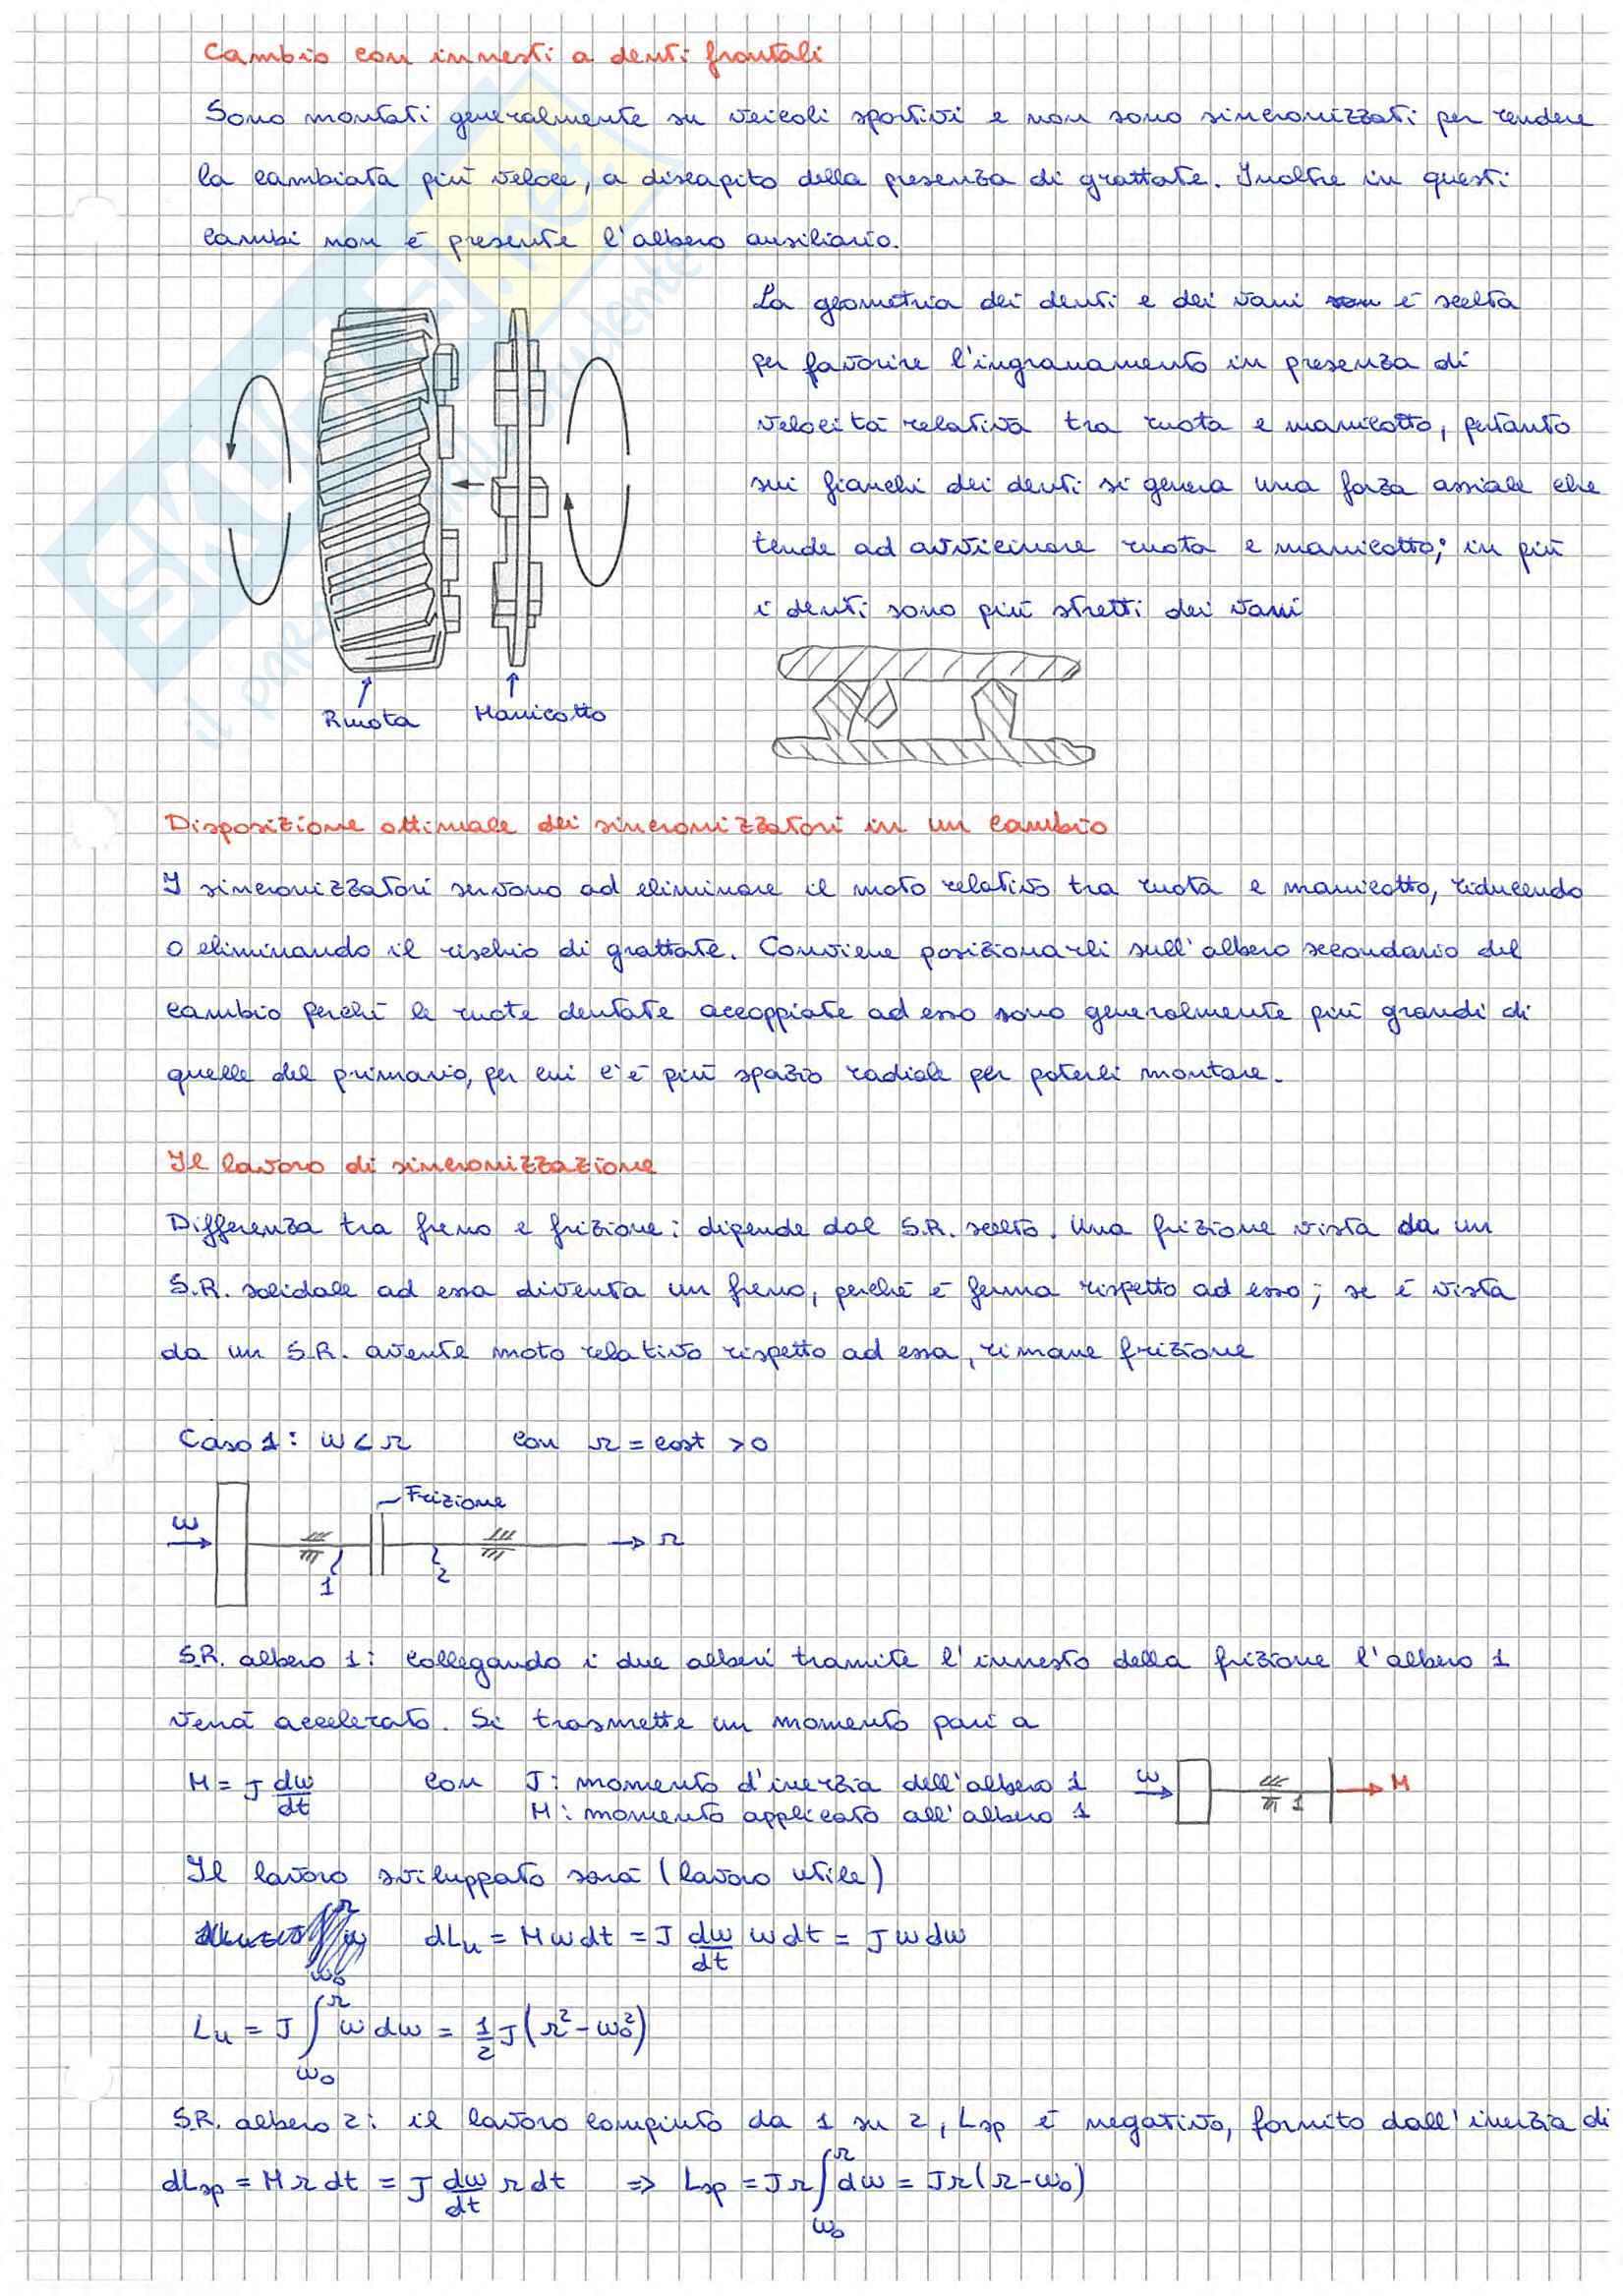 Cambio con innesti a denti frontali
Sono montati generalmente su veicoli sportivi e non sono sincronizzati per rendere
la cambiata più veloce, a discapito della presenza di grattate. Inoltre in questi
cambi non è presente l'albero ausiliario.
La geometria dei denti e dei vani è scelta
per favorire l'ingranamento in presenza di
velocità relativa tra ruota e manicotto, pertanto
sui fianchi dei denti si genera una forza assiale che
tende ad avvicinare ruota e manicotto; in più
i denti sono più stretti dei vani
Ruota
Manicotto
Disposizione ottimale dei sincronizzatori in un cambio
I sincronizzatori servono ad eliminare il moto relativo tra ruota e manicotto, riducendo
o eliminando il rischio di grattate. Conviene posizionarli sull'albero secondario del
cambio perché le ruote dentate accoppiate ad esso sono generalmente più grandi di
quelle del primario, per cui c'è più spazio radiale per poterli montare.
Il lavoro di sincronizzazione
Differenza tra freno e frizione: dipende dal S.R. scelto. Una frizione vista da un
S.R. solidale ad essa diventa un freno, perché è ferma rispetto ad esso; se è vista
da un S.R. avente moto relativo rispetto ad essa, rimane frizione
Caso 1: ω < Ω con Ω = cost > 0
Frizione
ω → 1 2 → Ω
S.R. albero 1: collegando i due alberi tramite l'innesto della frizione l'albero 1
verrà accelerato. Si trasmette un momento pari a
M = J dω/dt con J: momento d'inerzia dell'albero 1
M: momento applicato all'albero 1
ω 1 M
Il lavoro sviluppato sarà (lavoro utile)
dLu = M ω dt = J dω/dt ω dt = J ω dω
Lu = J ∫_ω₀^Ω ω dω = 1/2 J (Ω² - ω₀²)
S.R. albero 2: il lavoro compiuto da 1 su 2, Lsp è negativo, fornito dall'inerzia di
dLsp = M Ω dt = J dω/dt Ω dt ⇒ Lsp = J Ω ∫_ω₀^Ω dω = J Ω (Ω - ω₀)